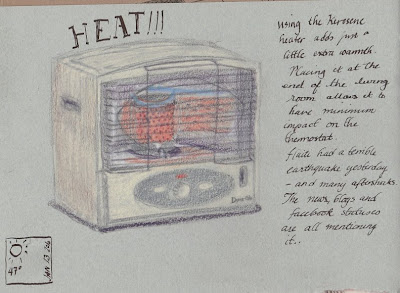 HEAT!!!
Using the Kerosene
heater adds just a
little extra warmth.
Placing it at the
end of the living
room allows it to
have minimum
impact on the
thermostat.
Haiti had a terrible
earthquake yesterday
- and many aftershocks.
The news, blogs and
facebook statuses
are all mentioning
it..
47°
JAN 13